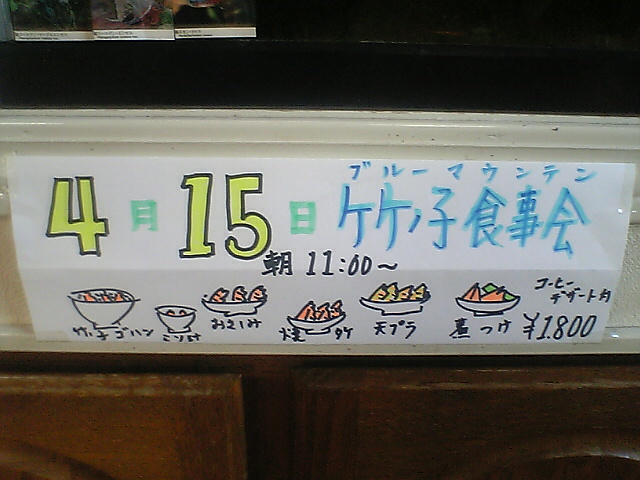 ブルーマウンテン
4月15日 竹ノ子食事会
朝 11:00～
コーヒー
デザート付
竹ノ子ゴハン
おさしみ
焼 タケ
天プラ
煮つけ
¥1.800